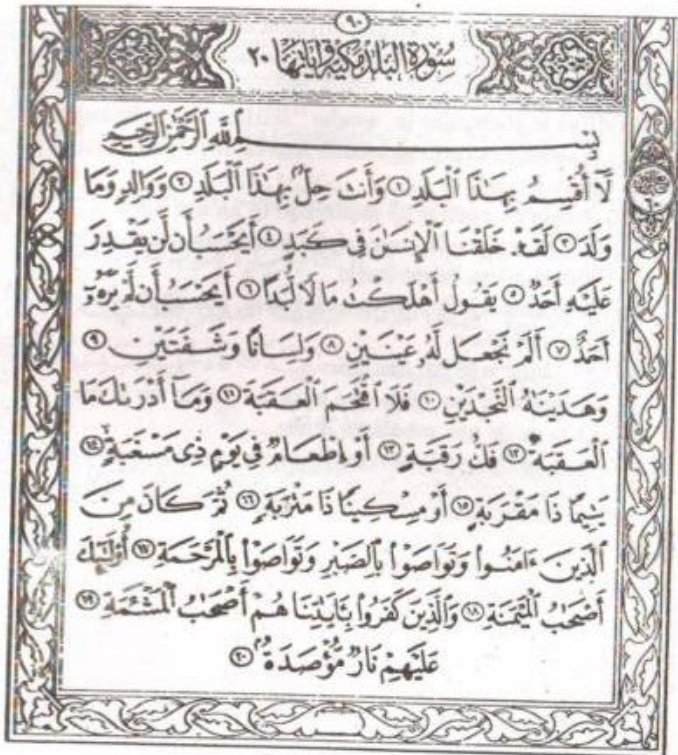 ٩٠
سُورَةُ الْبَلَدِ مَكِّيَّة وَآيَاتُهَا ٢٠
بِسْمِ ٱللَّهِ ٱلرَّحْمَٰنِ ٱلرَّحِيمِ
لَآ أُقْسِمُ بِهَٰذَا ٱلْبَلَدِ ١ وَأَنتَ حِلٌّۢ بِهَٰذَا ٱلْبَلَدِ ٢ وَوَالِدٍ وَمَا
وَلَدَ ٣ لَقَدْ خَلَقْنَا ٱلْإِنسَٰنَ فِي كَبَدٍ ٤ أَيَحْسَبُ أَن لَّن يَقْدِرَ
عَلَيْهِ أَحَدٌ ٥ يَقُولُ أَهْلَكْتُ مَالًا لُّبَدًا ٦ أَيَحْسَبُ أَن لَّمْ يَرَهُۥٓ
أَحَدٌ ٧ أَلَمْ نَجْعَل لَّهُۥ عَيْنَيْنِ ٨ وَلِسَانًا وَشَفَتَيْنِ ٩
وَهَدَيْنَٰهُ ٱلنَّجْدَيْنِ ١٠ فَلَا ٱقْتَحَمَ ٱلْعَقَبَةَ ١١ وَمَآ أَدْرَىٰكَ مَا
ٱلْعَقَبَةُ ١٢ فَكُّ رَقَبَةٍ ١٣ أَوْ إِطْعَٰمٌ فِي يَوْمٍ ذِي مَسْغَبَةٍ ١٤
يَتِيمًا ذَا مَقْرَبَةٍ ١٥ أَوْ مِسْكِينًا ذَا مَتْرَبَةٍ ١٦ ثُمَّ كَانَ مِنَ
ٱلَّذِينَ ءَامَنُوا۟ وَتَوَاصَوْا۟ بِٱلصَّبْرِ وَتَوَاصَوْا۟ بِٱلْمَرْحَمَةِ ١٧ أُو۟لَٰٓئِكَ
أَصْحَٰبُ ٱلْمَيْمَنَةِ ١٨ وَٱلَّذِينَ كَفَرُوا۟ بِـَٔايَٰتِنَا هُمْ أَصْحَٰبُ ٱلْمَشْـَٔمَةِ ١٩
عَلَيْهِمْ نَارٌ مُّؤْصَدَةٌۢ ٢٠